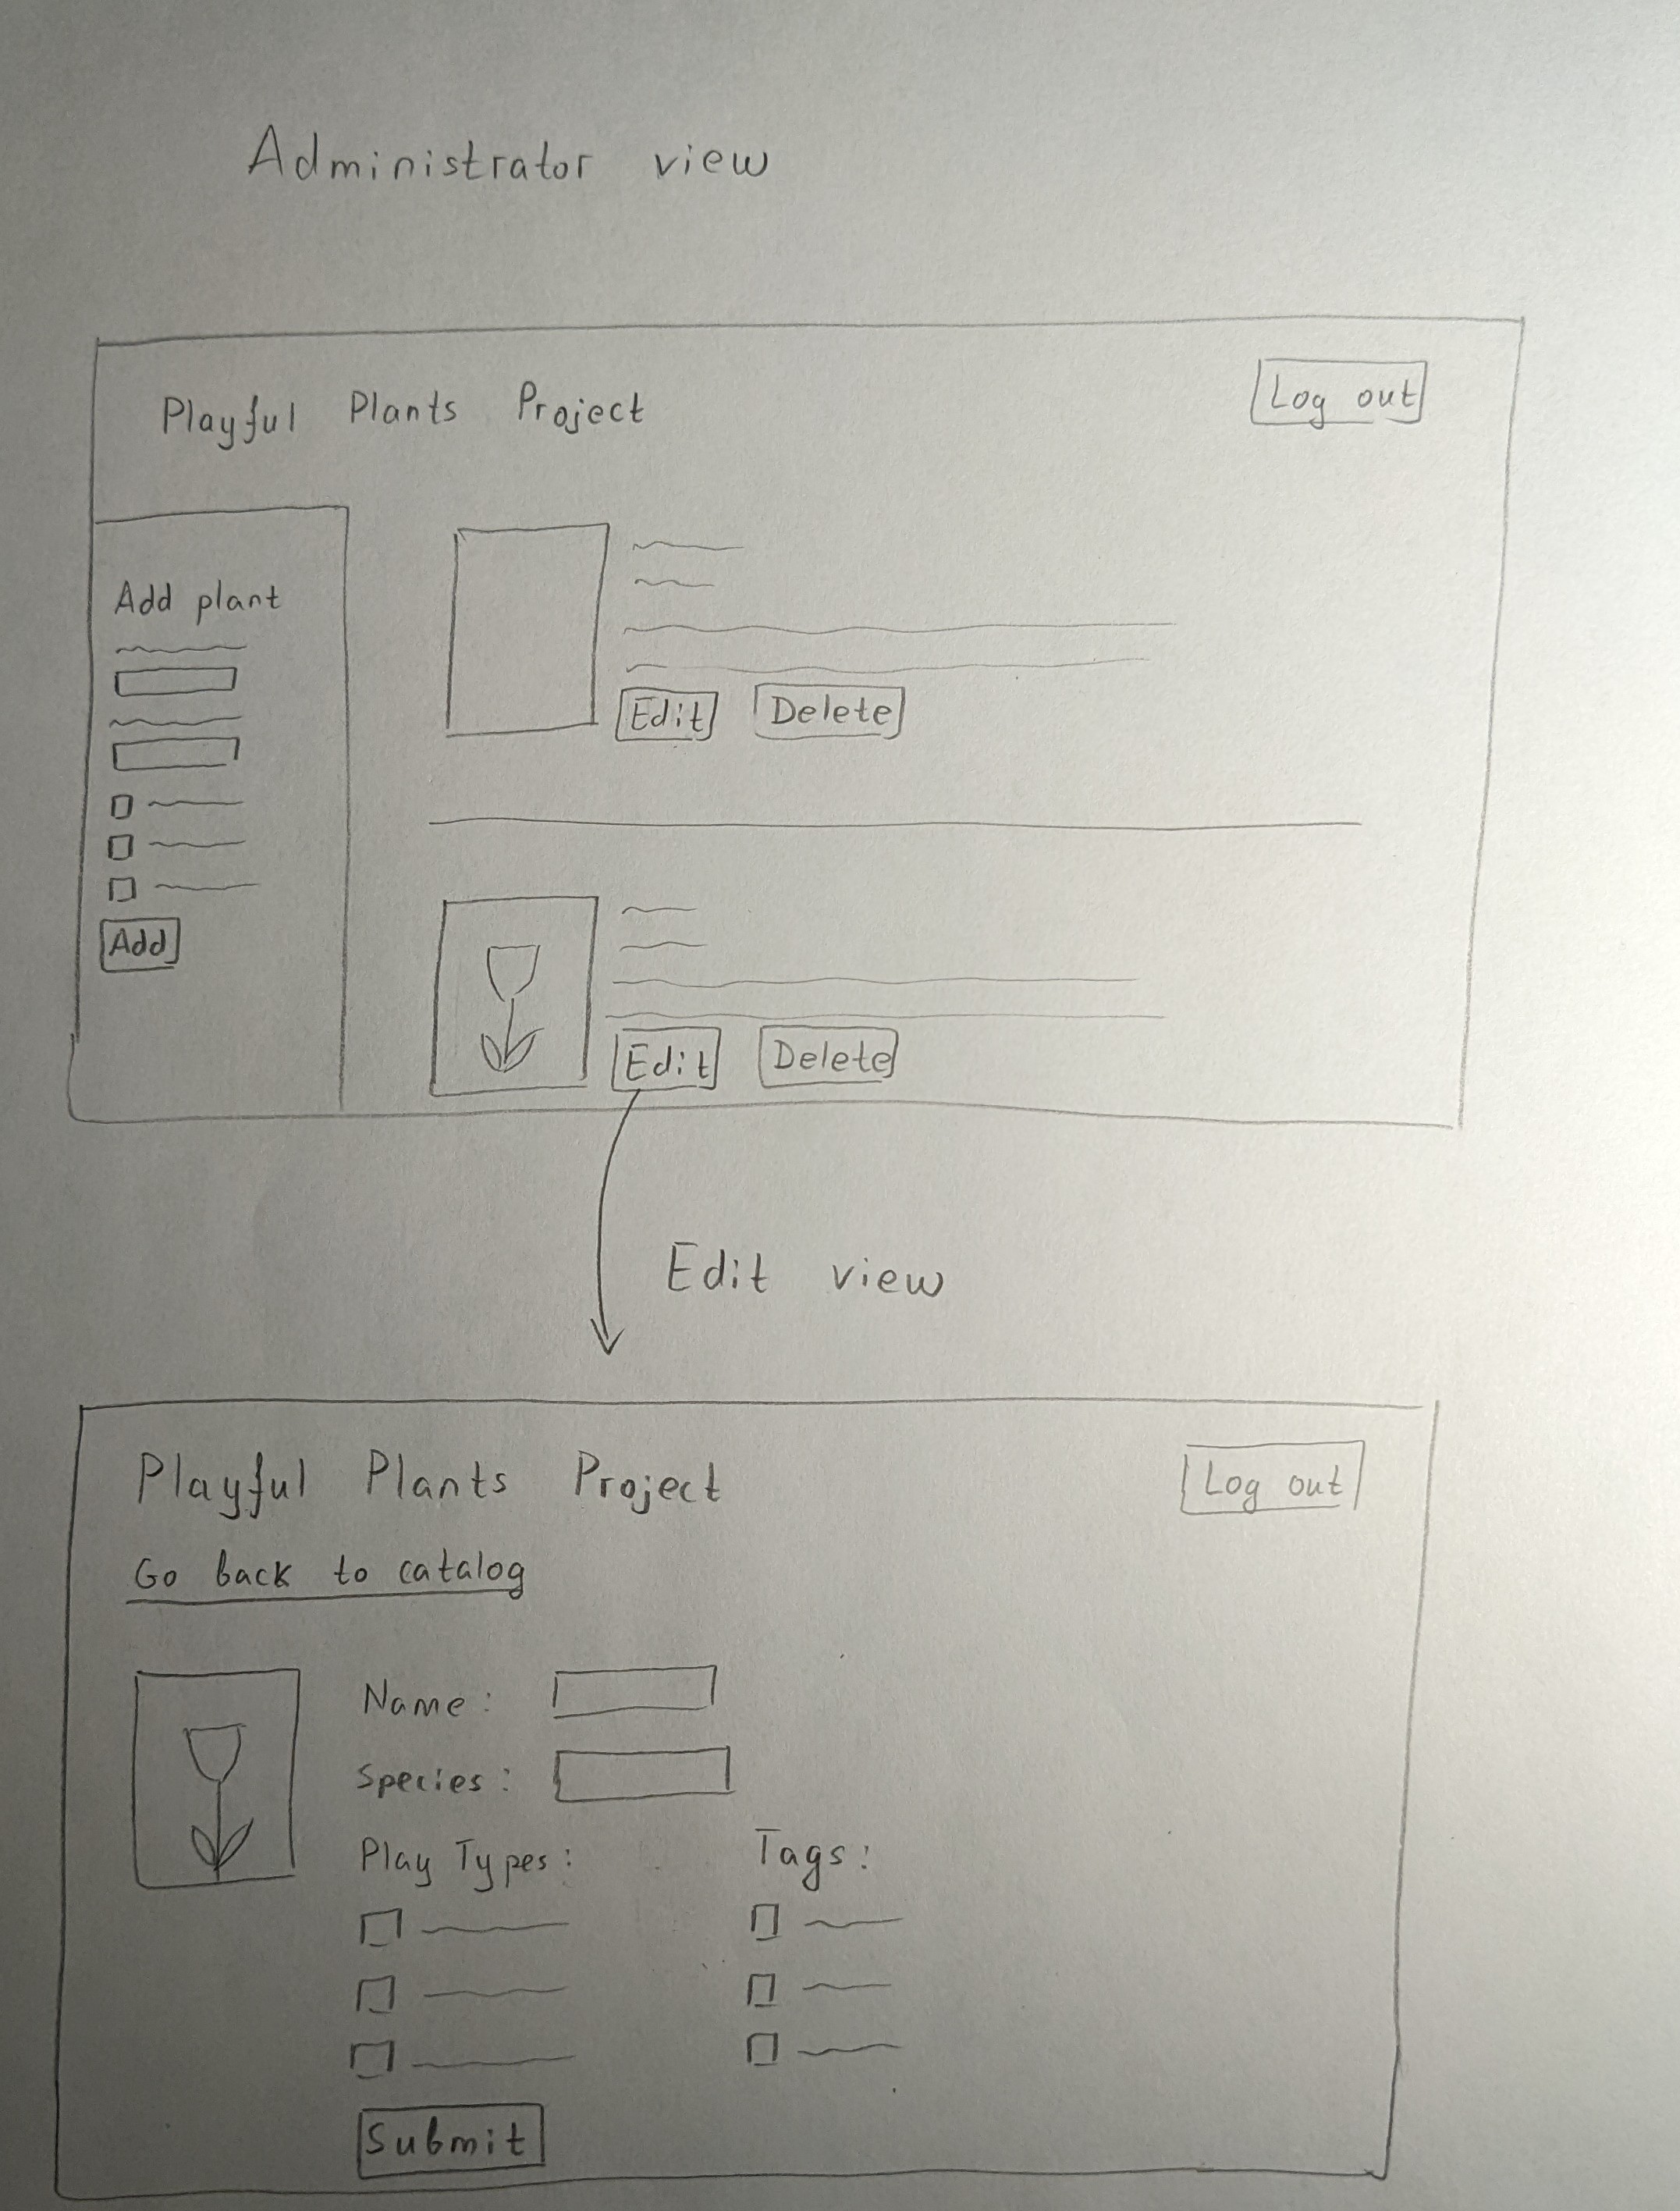 Administrator view
Playful Plants Project
Log out
Add plant
Add
Edit Delete
Edit Delete
Edit view
Playful Plants Project
Log out
Go back to catalog
Name:
Species:
Play Types: Tags:
Submit